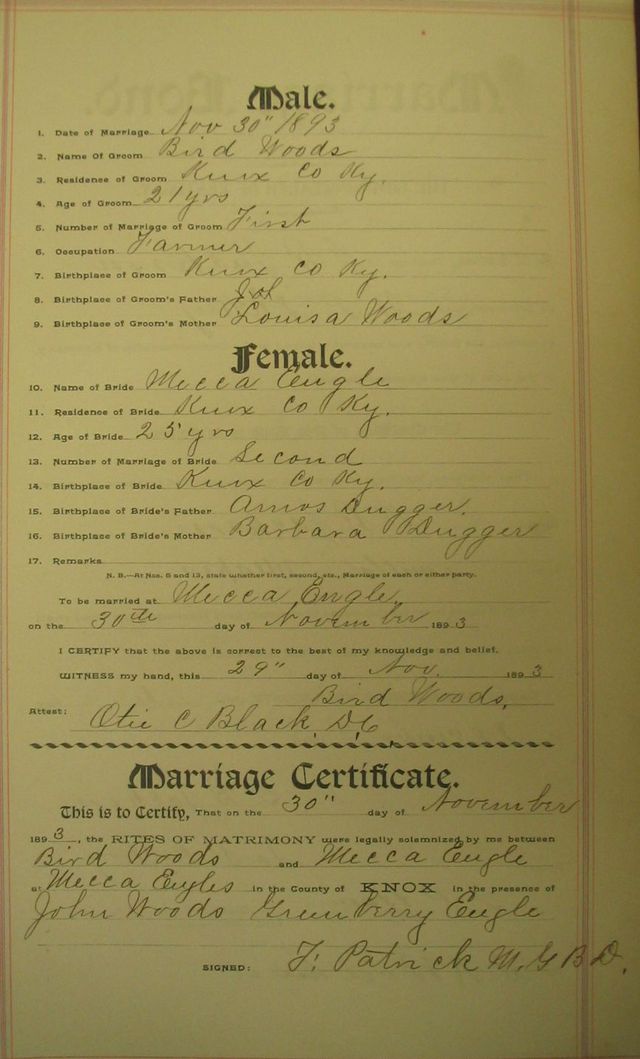 Male.
1. Date of Marriage Nov 30" 1893
2. Name Of Groom Bird Woods
3. Residence of Groom Knox Co Ky.
4. Age of Groom 21 yrs
5. Number of Marriage of Groom First
6. Occupation Farmer
7. Birthplace of Groom Knox Co Ky.
8. Birthplace of Groom's Father
9. Birthplace of Groom's Mother Louisa Woods
Female.
10. Name of Bride Mecca Engle
11. Residence of Bride Knox Co Ky.
12. Age of Bride 25 yrs
13. Number of Marriage of Bride Second
14. Birthplace of Bride Knox Co Ky.
15. Birthplace of Bride's Father Amos Dugger.
16. Birthplace of Bride's Mother Barbara Dugger
17. Remarks
N. B.—At Nos. 5 and 13, state whether first, second, etc., Marriage of each or either party.
To be married at Mecca Engle,
on the 30th day of November 1893
I CERTIFY that the above is correct to the best of my knowledge and belief.
WITNESS my hand, this 29" day of Nov. 1893
Bird Woods,
Attest: Otie C Black, D,C,
Marriage Certificate.
This is to Certify, That on the 30" day of November
1893, the RITES OF MATRIMONY were legally solemnized by me between
Bird Woods and Mecca Engle
at Mecca Engles in the County of KNOX in the presence of
John Woods Greenberry Engle
SIGNED: F. Patrick M. G B D.